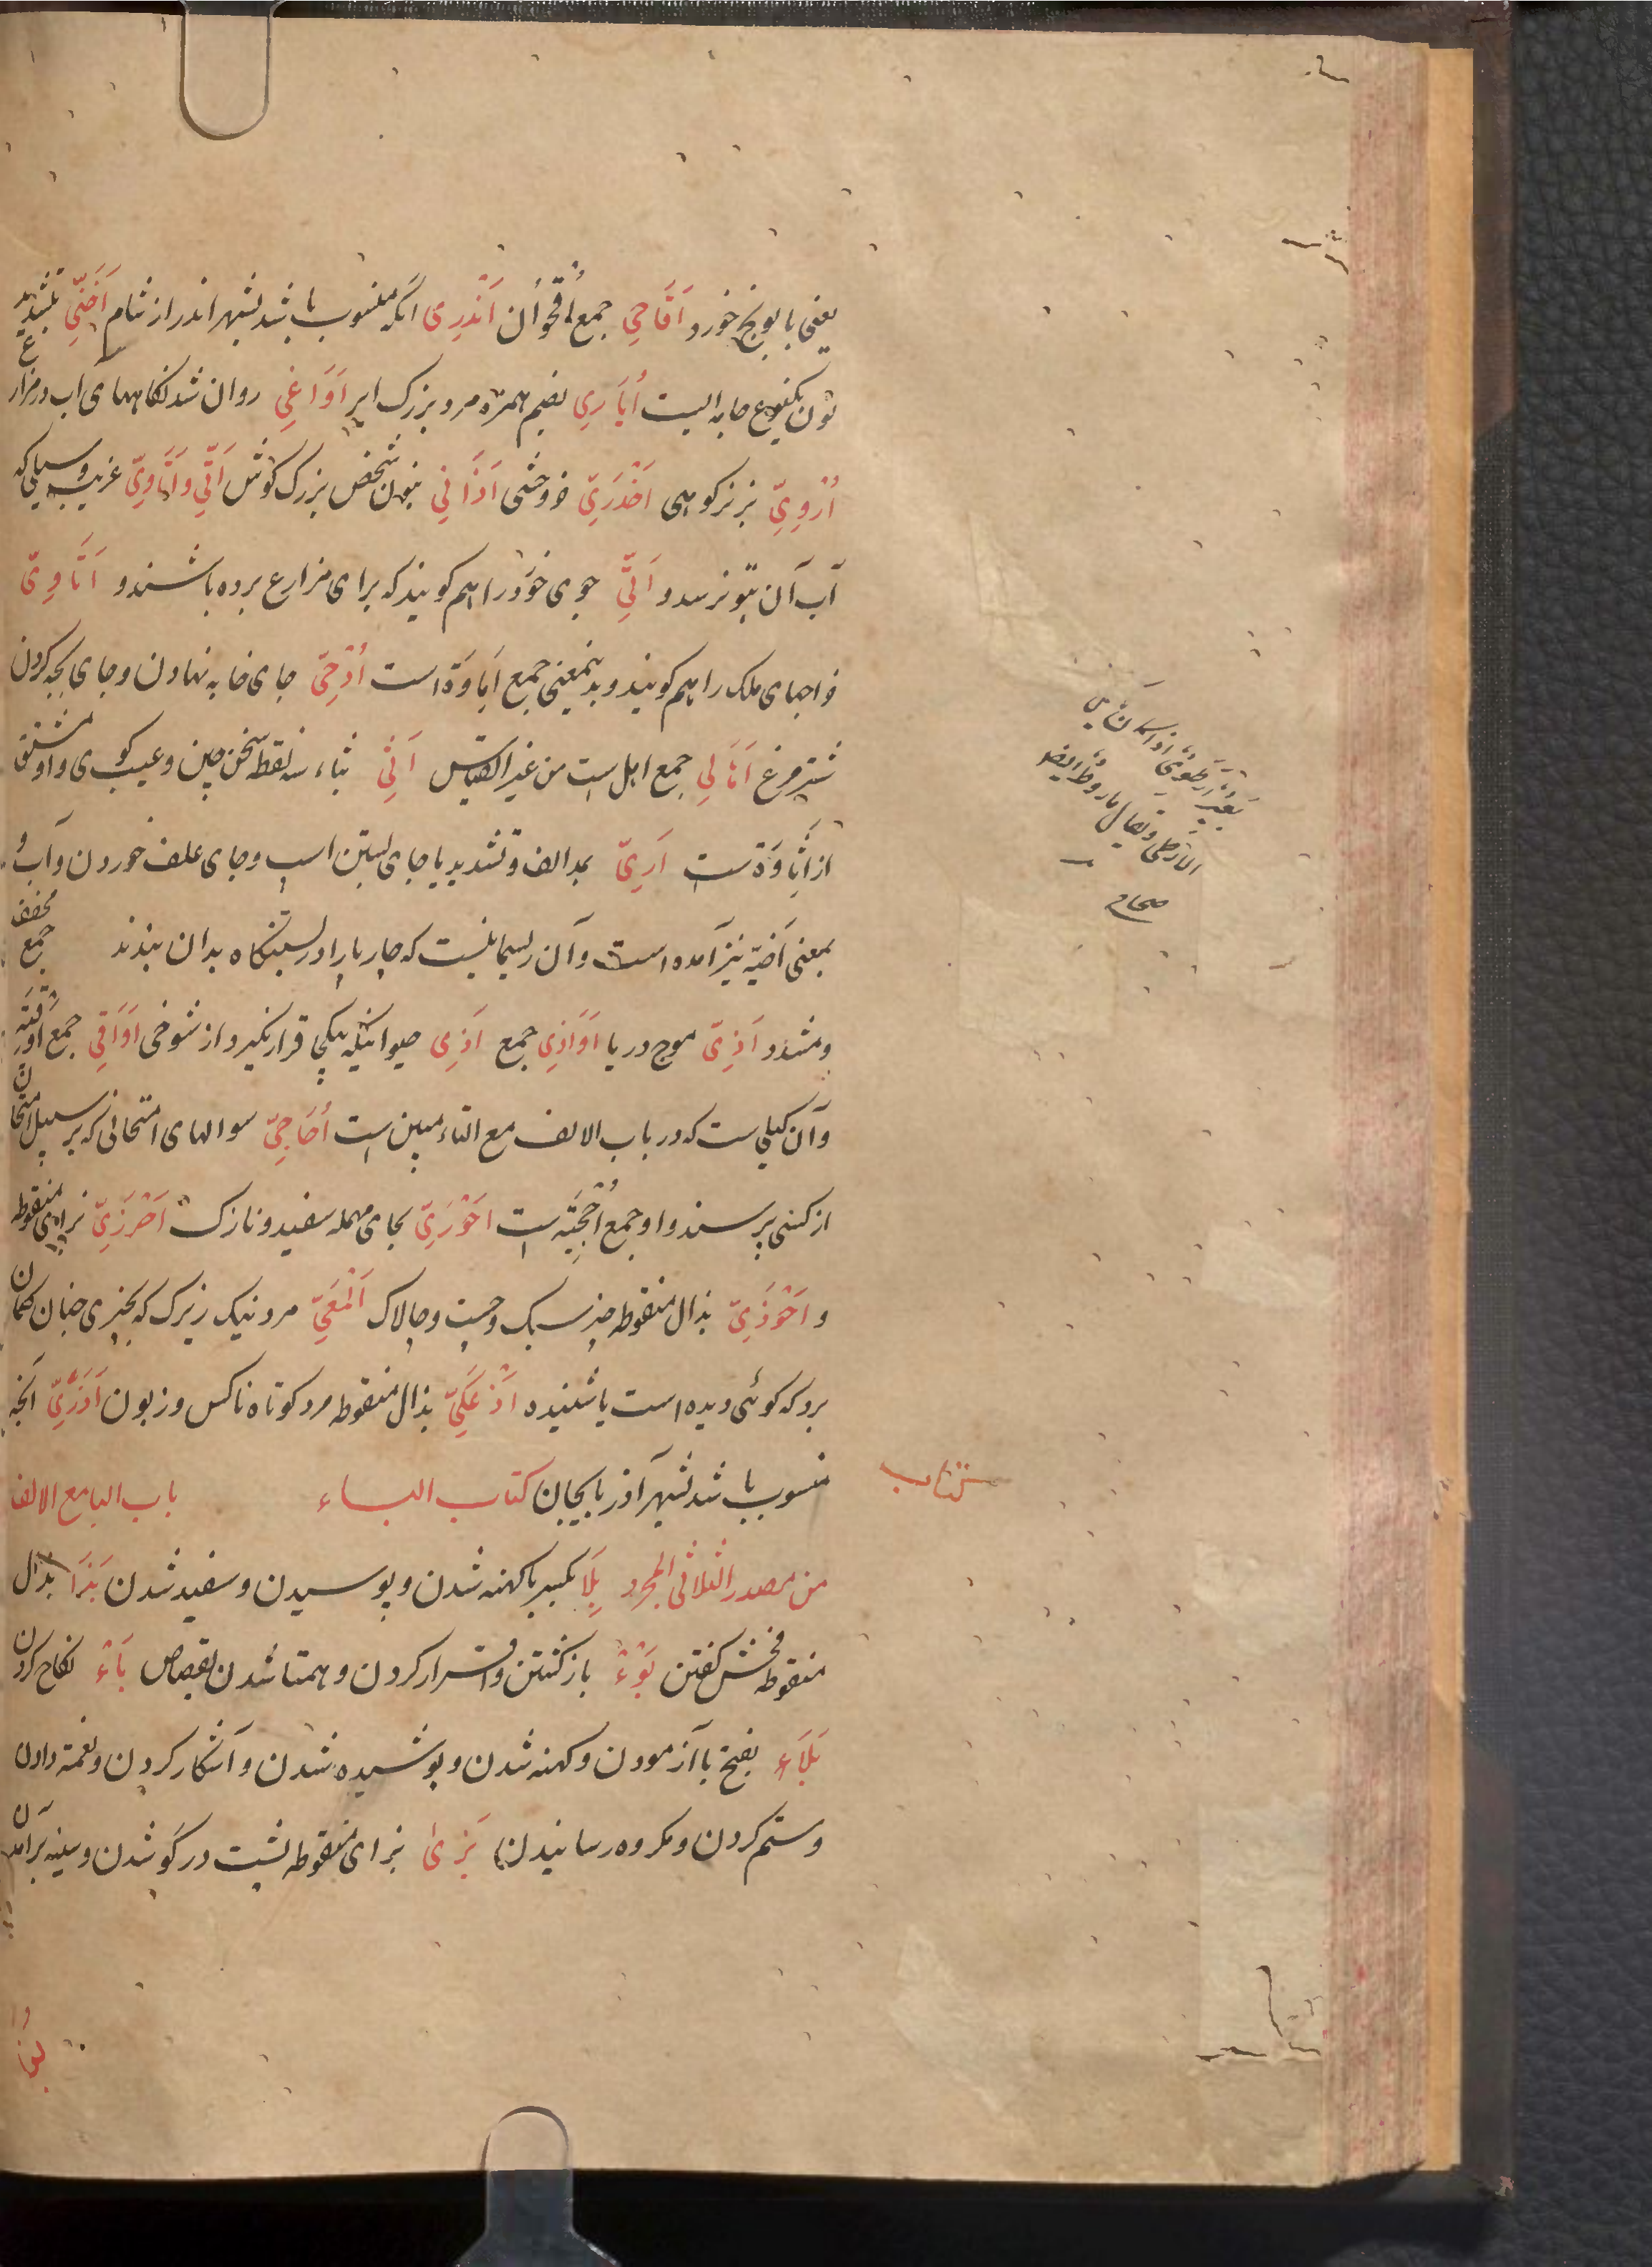 یعنی بابونج خورد اَقَاحِی جمع اُقْحُوان اَنْدَرِی انکه منسوب باشد بشهر اندر از شام اَخَنِّی بتشدید
نون یکنوع جامه ایست اُیَارِی بضم همزه مرد بزرک ایر اَوَاغِی روان شدنکاههای اب در مزارع
اُرْوِیّ بز نر کوهی اَخْدَرِیّ خر وحشی اَذَانِی بنون شخص بزرک کوش اَتِّی وَاَتَاوِیّ غریب و سیلی که
آب آن بتو نرسد و اَتِّی جوی خورد را هم کویند که برای مزارع برده باشند و اَتَاوِیّ
خراجهای ملک را هم کویند و بدینمعنی جمع اَتَاوَة است اُدْحِیّ جای خایه نهادن و جای بچه کردن
شترمرغ اَهَالِی جمع اهل ست من غیر القیاس اَثِی بثاء سه نقطه سخن چین و عیب کوی و او مشتق
از اَثَاوَة ست آرِیّ بمد الف و تشدید یا جای بستن اسپ و جای علف خوردن و آب و
بمعنی آخیّه نیز آمده است و آن ریسمانیست که چارپا را در بستنکاه بدان بندند جمع مخفف
و مشدد آذِیّ موج دریا اَوَاذِی جمع اَذِی حیوانیکه بیکی قرار نکیرد از شوخی اَوَاقِی جمع اُوقِیَّه
و آن کیلی ست که در باب الالف مع التاء مبین است اُحَاجِیّ سوالهای امتحانی که بر سبیل امتحان
از کسی پرسند و او جمع اُحْجِیَّه است اَحْوَرِیّ بحای مهمله سفید و نازک اَحْوَزِیّ بزای منقوطه
و اَحْوَذِیّ بذال منقوطه چیز سبک و چست و چالاک اَلْمَعِیّ مرد نیک زیرک که بچیزی چنان کمان
برد که کوئی دیده است یا شنیده اَذْعَکِیّ بذال منقوطه مرد کوتاه ناکس و زبون اَذَرِیّ انچه
منسوب باشد بشهر آذربایجان کتاب الباء باب البا مع الالف
من مصدر الثلاثی المجرد بِلَا بکسر با کهنه شدن و پوسیدن و سفید شدن بَذَا بذال
منقوطه فحش کفتن بَوْءْ باز کشتن و اقرار کردن و همتا شدن بقصاص بَاءْ نکاح کردن
بَلَاء بفتح با آزمودن و کهنه شدن و پوشیده شدن و آشکار کردن و نعمة دادن
و ستم کردن و مکروه رسانیدن بَزَیٰ بزای منقوطه پشت در کو شدن و سینه بر آمدن
کتاب
صحاح